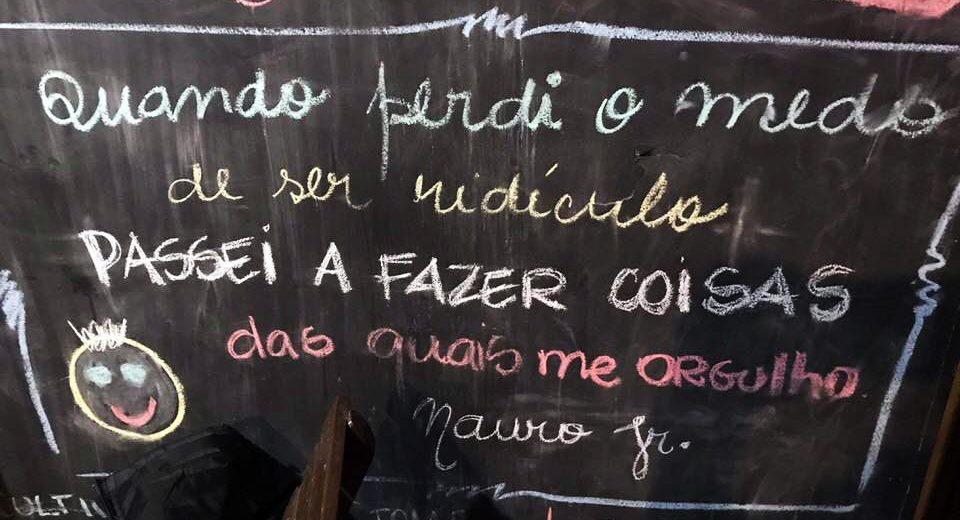 Quando perdi o medo
de ser ridículo
PASSEi A FAZER COiSAS
das quais me ORGulho
Nauro Jr.